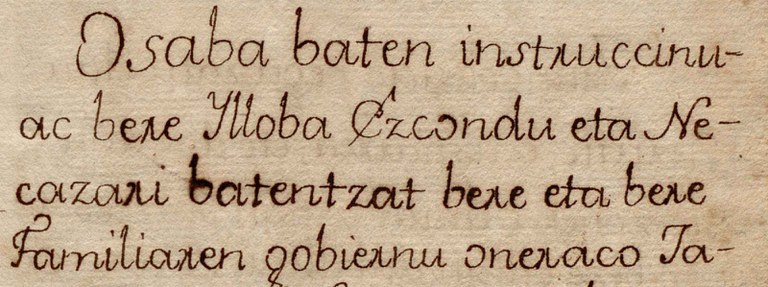 Osaba baten instruccinu-
ac bere Ylloba Ezcondu eta Ne-
cazari batentzat bere eta bere
Familiaren gobiernu oneraco Ja-